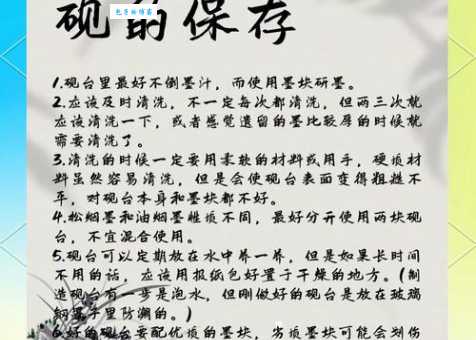 砚的保存
1.砚台里最好不倒墨汁，而使用墨块研墨。
2.应该及时清洗，不一定每次都清洗，但两三次就
应该清洗一下，或者感觉遗留的墨比较厚的时候就
需要清洗了。
3.清洗的时候一定要用柔软的材料或用手，硬质材
料虽然容易清洗，但是会使砚台表面变得粗糙不
平，对砚台本身和墨块都不好。
4.松烟墨和油烟墨性质不同，最好分开使用两块砚
台，不宜混合使用。
5.砚台可以定期放在水中养一养，但是如果长时间
不用的话，应该用报纸包好置于干燥的地方。(制
造砚台有一步是泡水，但刚做好的砚台是放在玻璃
钢罩子里防潮的。)
6.好的砚台要配优质的墨块，劣质墨块可能会划伤